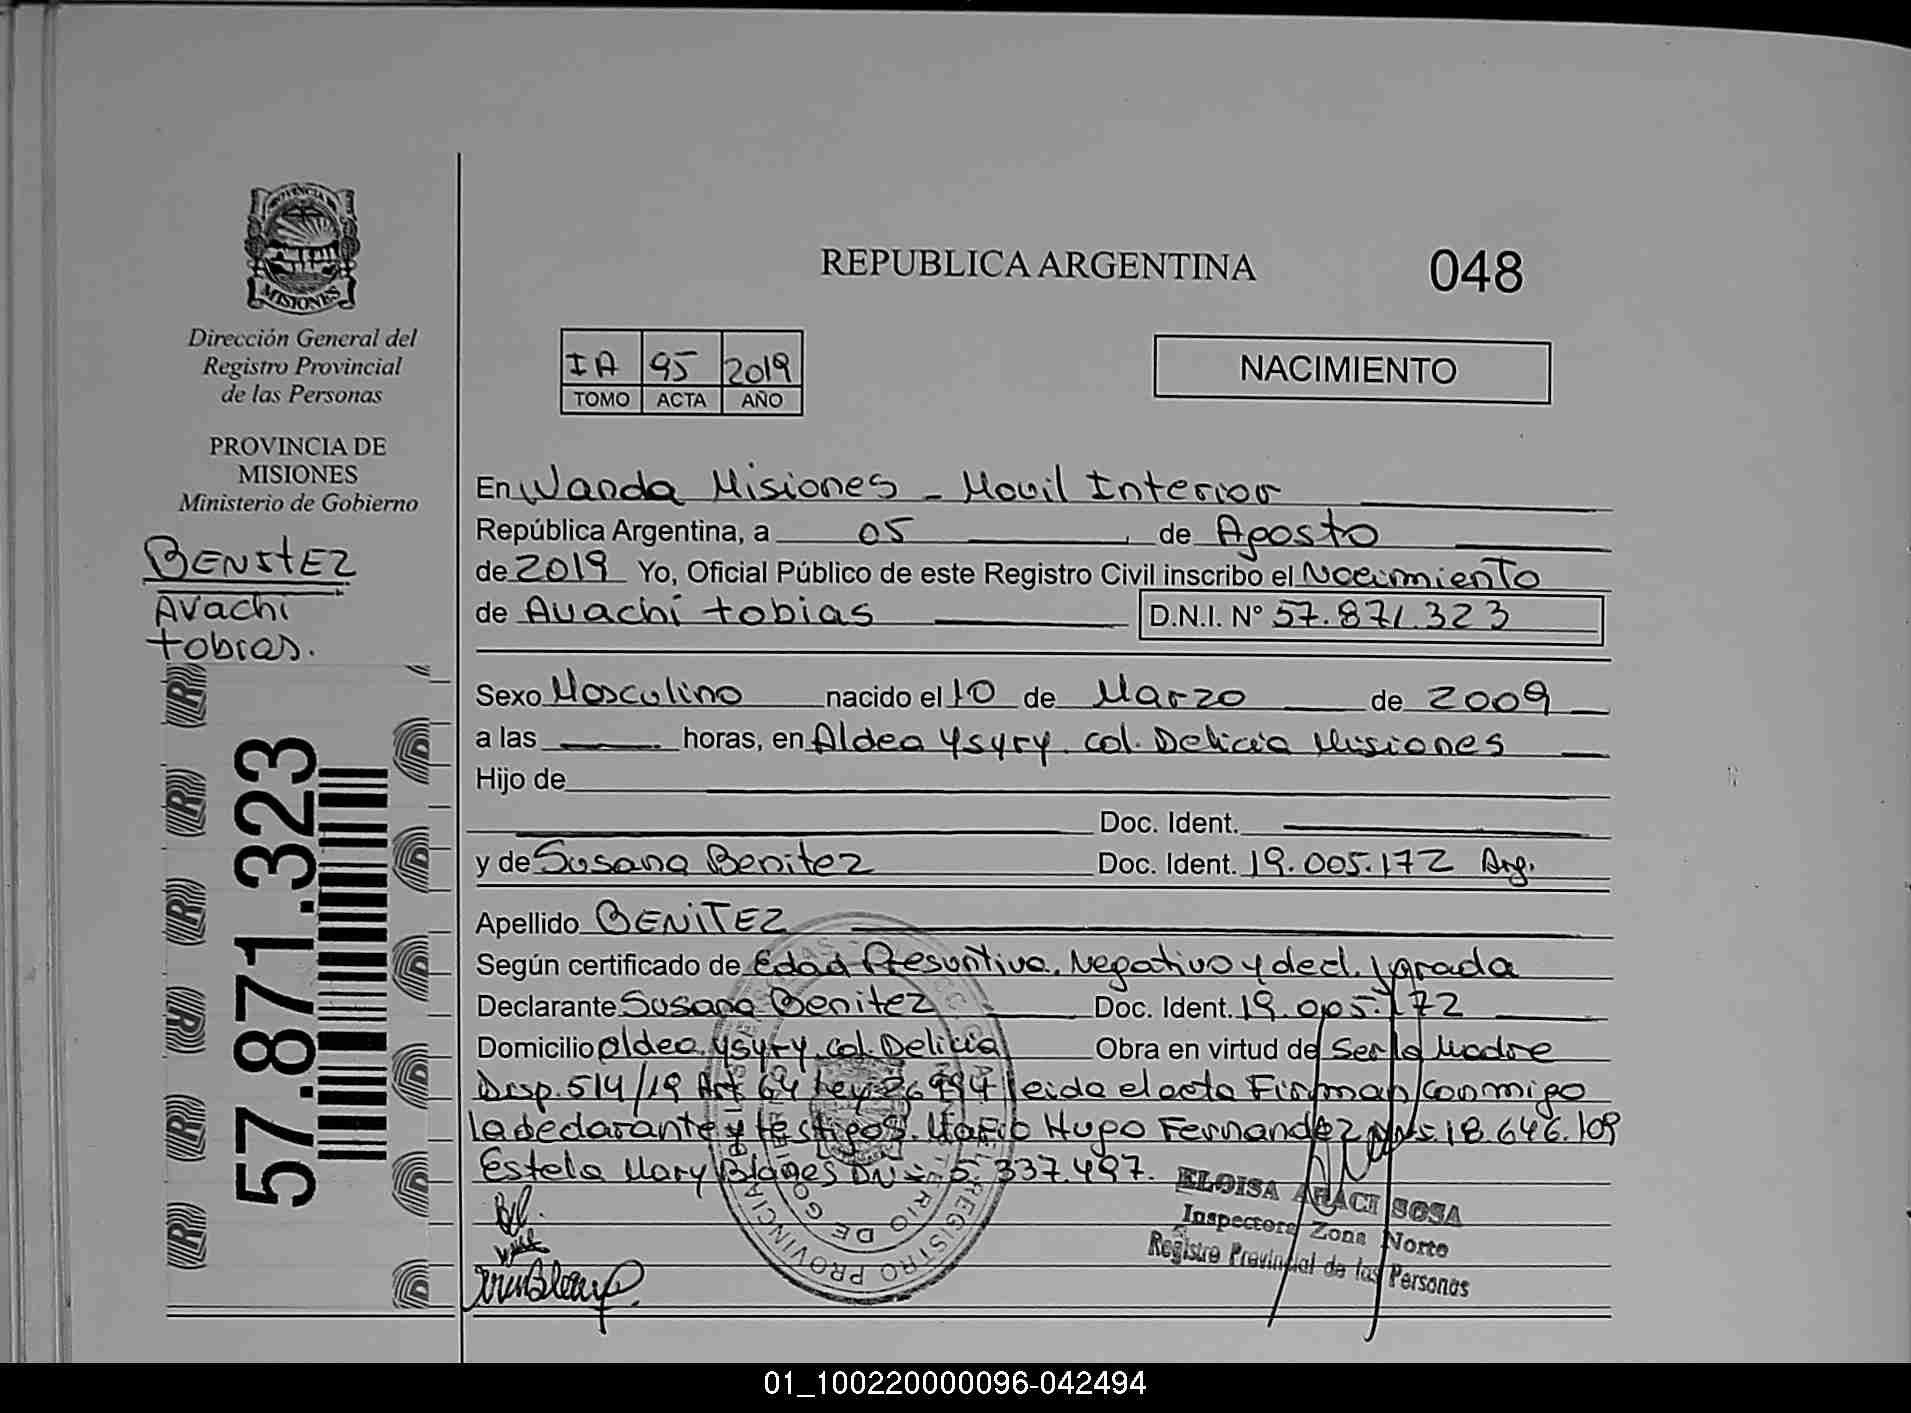 PROVINCIA DE
MISIONES
Dirección General del
Registro Provincial
de las Personas
PROVINCIA DE
MISIONES
Ministerio de Gobierno
BENITEZ
Avachi
tobias.
57.871.323
REPUBLICA ARGENTINA
048
IA 95 2019
TOMO ACTA AÑO
NACIMIENTO
En Wanda Misiones - Movil Interior
República Argentina, a 05 de Agosto
de 2019 Yo, Oficial Público de este Registro Civil inscribo el Nacimiento
de Avachi tobias D.N.I. Nº 57.871.323
Sexo Masculino nacido el 10 de Marzo de 2009
a las horas, en Aldea Ysyry. col. Delicia Misiones
Hijo de
Doc. Ident.
y de Susana Benitez Doc. Ident. 19.005.172 Arg.
Apellido BENITEZ
Según certificado de Edad Presuntiva, Negativo y decl. jurada
Declarante Susana Benitez Doc. Ident. 19.005.172
Domicilio aldea ysyry. col. Delicia Obra en virtud de Ser la Madre
Disp. 514/19 Art 64 Ley 26994 leida el acta Firman conmigo
la declarante y testigos. Mario Hugo Fernandez 18.646.109
Estela Mary Blanes DNI 5.337.497.
ELOISA ARACI SOSA
Inspectora Zona Norte
Registro Provincial de las Personas
REGISTRO PROVINCIAL
MINISTERIO DE GOBIERNO
01_100220000096-042494